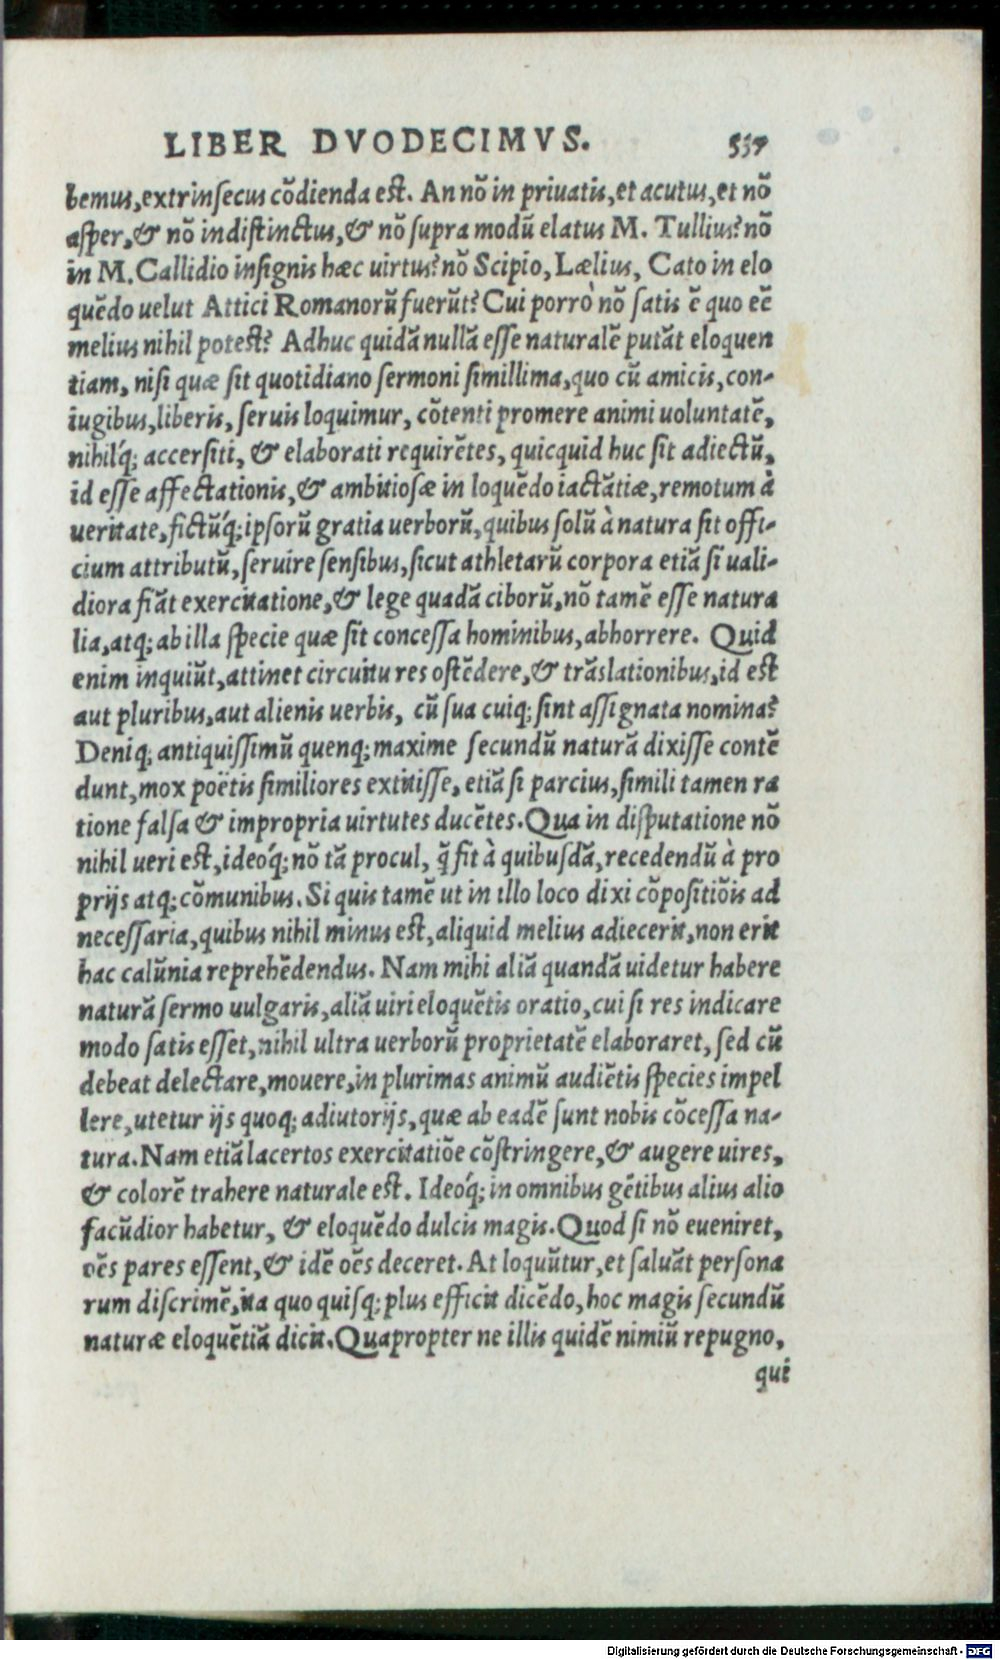 LIBER DVODECIMVS. 537
bemus,extrinſecus cōdienda est. An nō in priuatis,et acutus,et nō
aſper,& nō indiſtinctus,& nō ſupra modū elatus M. Tullius? nō
in M. Callidio inſignis hæc uirtus? nō Scipio, Lælius, Cato in elo
quēdo uelut Attici Romanorū fuerūt? Cui porrò nō ſatis ē quo eē
melius nihil potest? Adhuc quidā nullā eſſe naturalē putāt eloquen
tiam, niſi quæ ſit quotidiano ſermoni ſimillima,quo cū amicis,con-
iugibus,liberis, ſeruis loquimur, cōtenti promere animi uoluntatē,
nihilq́; accerſiti, & elaborati requirētes, quicquid huc ſit adiectū,
id eſſe affectationis,& ambitioſæ in loquēdo iactātiæ,remotum à
ueritate,fictūq́;ipſorū gratia uerborū,quibus ſolū à natura ſit offi-
cium attributū,ſeruire ſenſibus,ſicut athletarū corpora etiā ſi uali-
diora fiāt exercitatione,& lege quadā ciborū,nō tamē eſſe natura
lia,atq; ab illa ſpecie quæ ſit conceſſa hominibus,abhorrere. Quid
enim inquiūt,attinet circuitu res oſtēdere,& trāslationibus,id est
aut pluribus,aut alienis uerbis, cū ſua cuiq; ſint aſſignata nomina?
Deniq; antiquiſſimū quenq; maxime ſecundū naturā dixiſſe contē
dunt,mox poëtis ſimiliores extitiſſe, etiā ſi parcius,ſimili tamen ra
tione falſa & impropria uirtutes ducētes.Qua in diſputatione nō
nihil ueri est,ideoq́; nō tā procul, q̄̃ fit à quibuſdā,recedendū à pro
prijs atq; cōmunibus. Si quis tamē ut in illo loco dixi cōpoſitiōis ad
neceſſaria,quibus nihil minus est,aliquid melius adiecerit,non erit
hac calūnia reprehēdendus. Nam mihi aliā quandā uidetur habere
naturā ſermo uulgaris,aliā uiri eloquētis oratio,cui ſi res indicare
modo ſatis eſſet,nihil ultra uerborū proprietatē elaboraret, ſed cū
debeat delectare,mouere,in plurimas animū audiētis ſpecies impel
lere,utetur ijs quoq; adiutorijs,quæ ab eadē ſunt nobis cōceſſa na-
tura. Nam etiā lacertos exercitatiōe cōſtringere,& augere uires,
& colorē trahere naturale est. Ideoq́; in omnibus gētibus alius alio
facūdior habetur, & eloquēdo dulcis magis. Quod ſi nō eueniret,
oēs pares eſſent,& idē oēs deceret. At loquūtur,et ſaluāt perſona
rum diſcrimē,ita quo quiſq; plus efficit dicēdo,hoc magis ſecundū
naturæ eloquētiā dicit.Quapropter ne illis quidē nimiū repugno,
qui
Digitalisierung gefördert durch die Deutsche Forschungsgemeinschaft - DFG